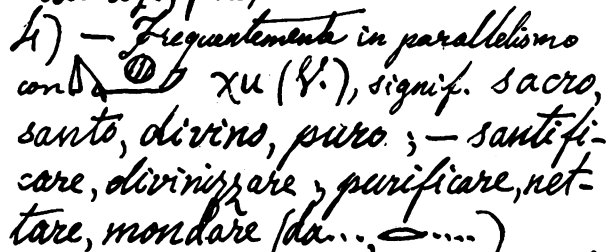 4) — Frequentemente in parallelismo
con χu (V.), signif. sacro,
santo, divino, puro; — santifi-
care, divinizzare; purificare, net-
tare, mondare (da..., ....)